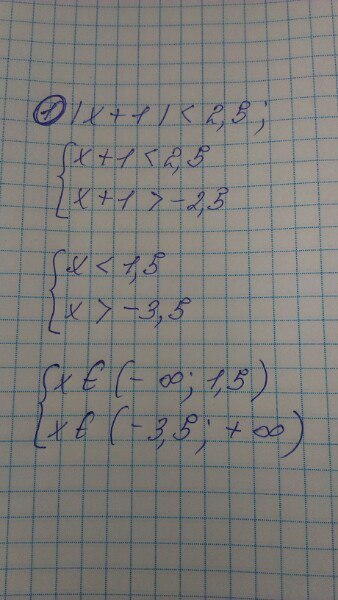 ① |x+1| < 2,5;
{ x+1 < 2,5
x+1 > -2,5
{ x < 1,5
x > -3,5
{ x ∈ (-∞; 1,5)
x ∈ (-3,5; +∞)